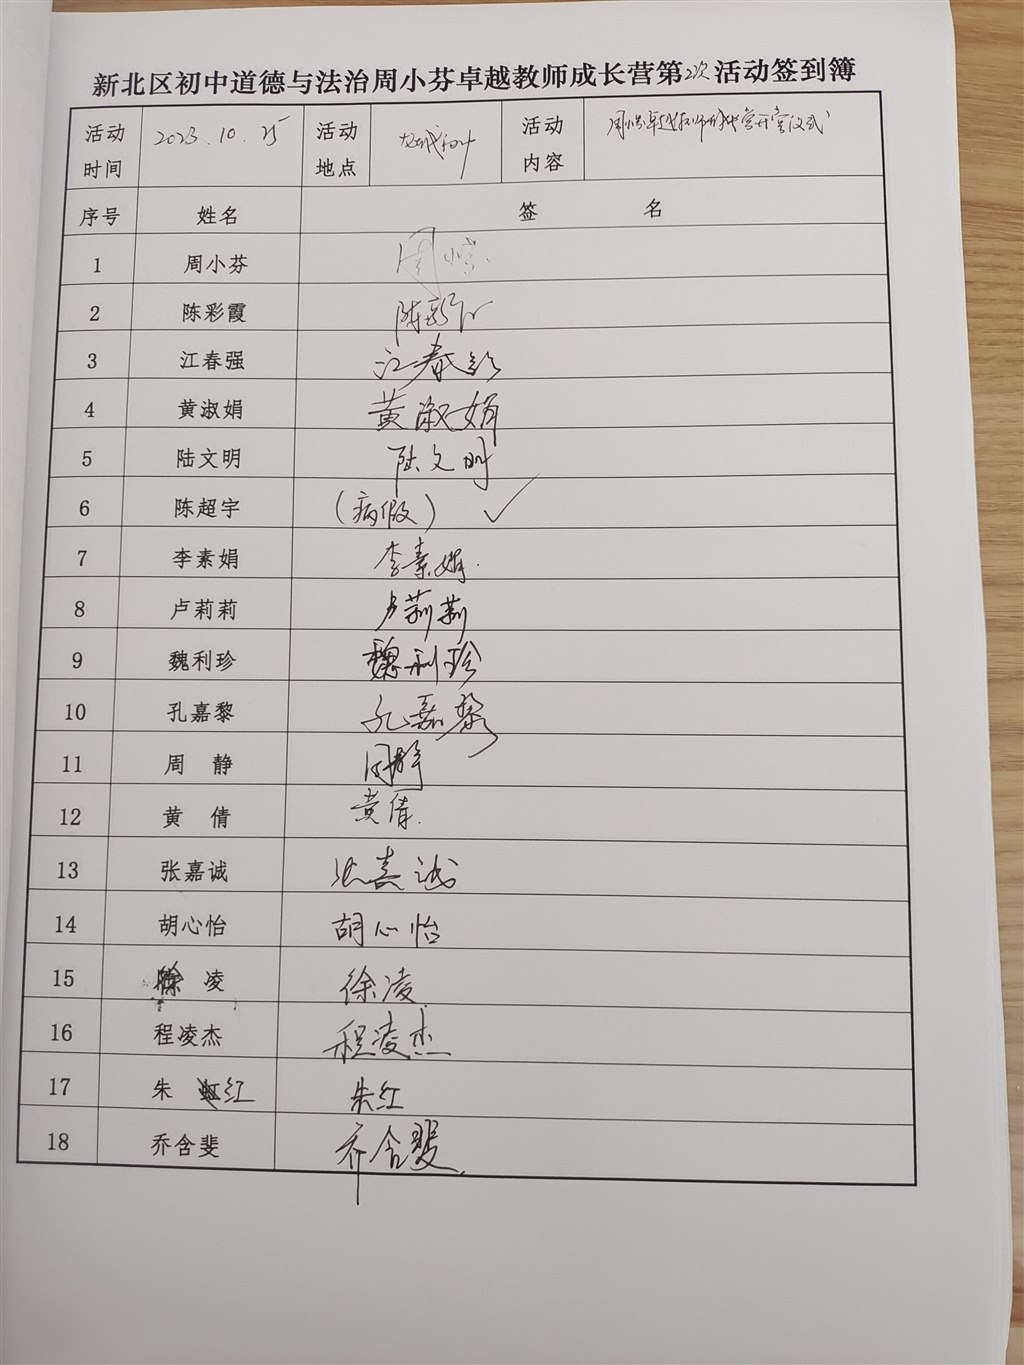 新北区初中道德与法治周小芬卓越教师成长营第2次活动签到簿
活动时间 2023.10.25 活动地点 活动内容 周小芬卓越教师成长营开营仪式
序号 姓名 签 名
1 周小芬 周小芬
2 陈彩霞 陈彩霞
3 江春强 江春强
4 黄淑娟 黄淑娟
5 陆文明 陆文明
6 陈超宇 (病假) ✓
7 李素娟 李素娟.
8 卢莉莉 卢莉莉
9 魏利珍 魏利珍
10 孔嘉黎 孔嘉黎
11 周 静 周静
12 黄 倩 黄倩.
13 张嘉诚 张嘉诚
14 胡心怡 胡心怡
15 徐 凌 徐凌
16 程凌杰 程凌杰
17 朱 红 朱红
18 乔含斐 乔含斐